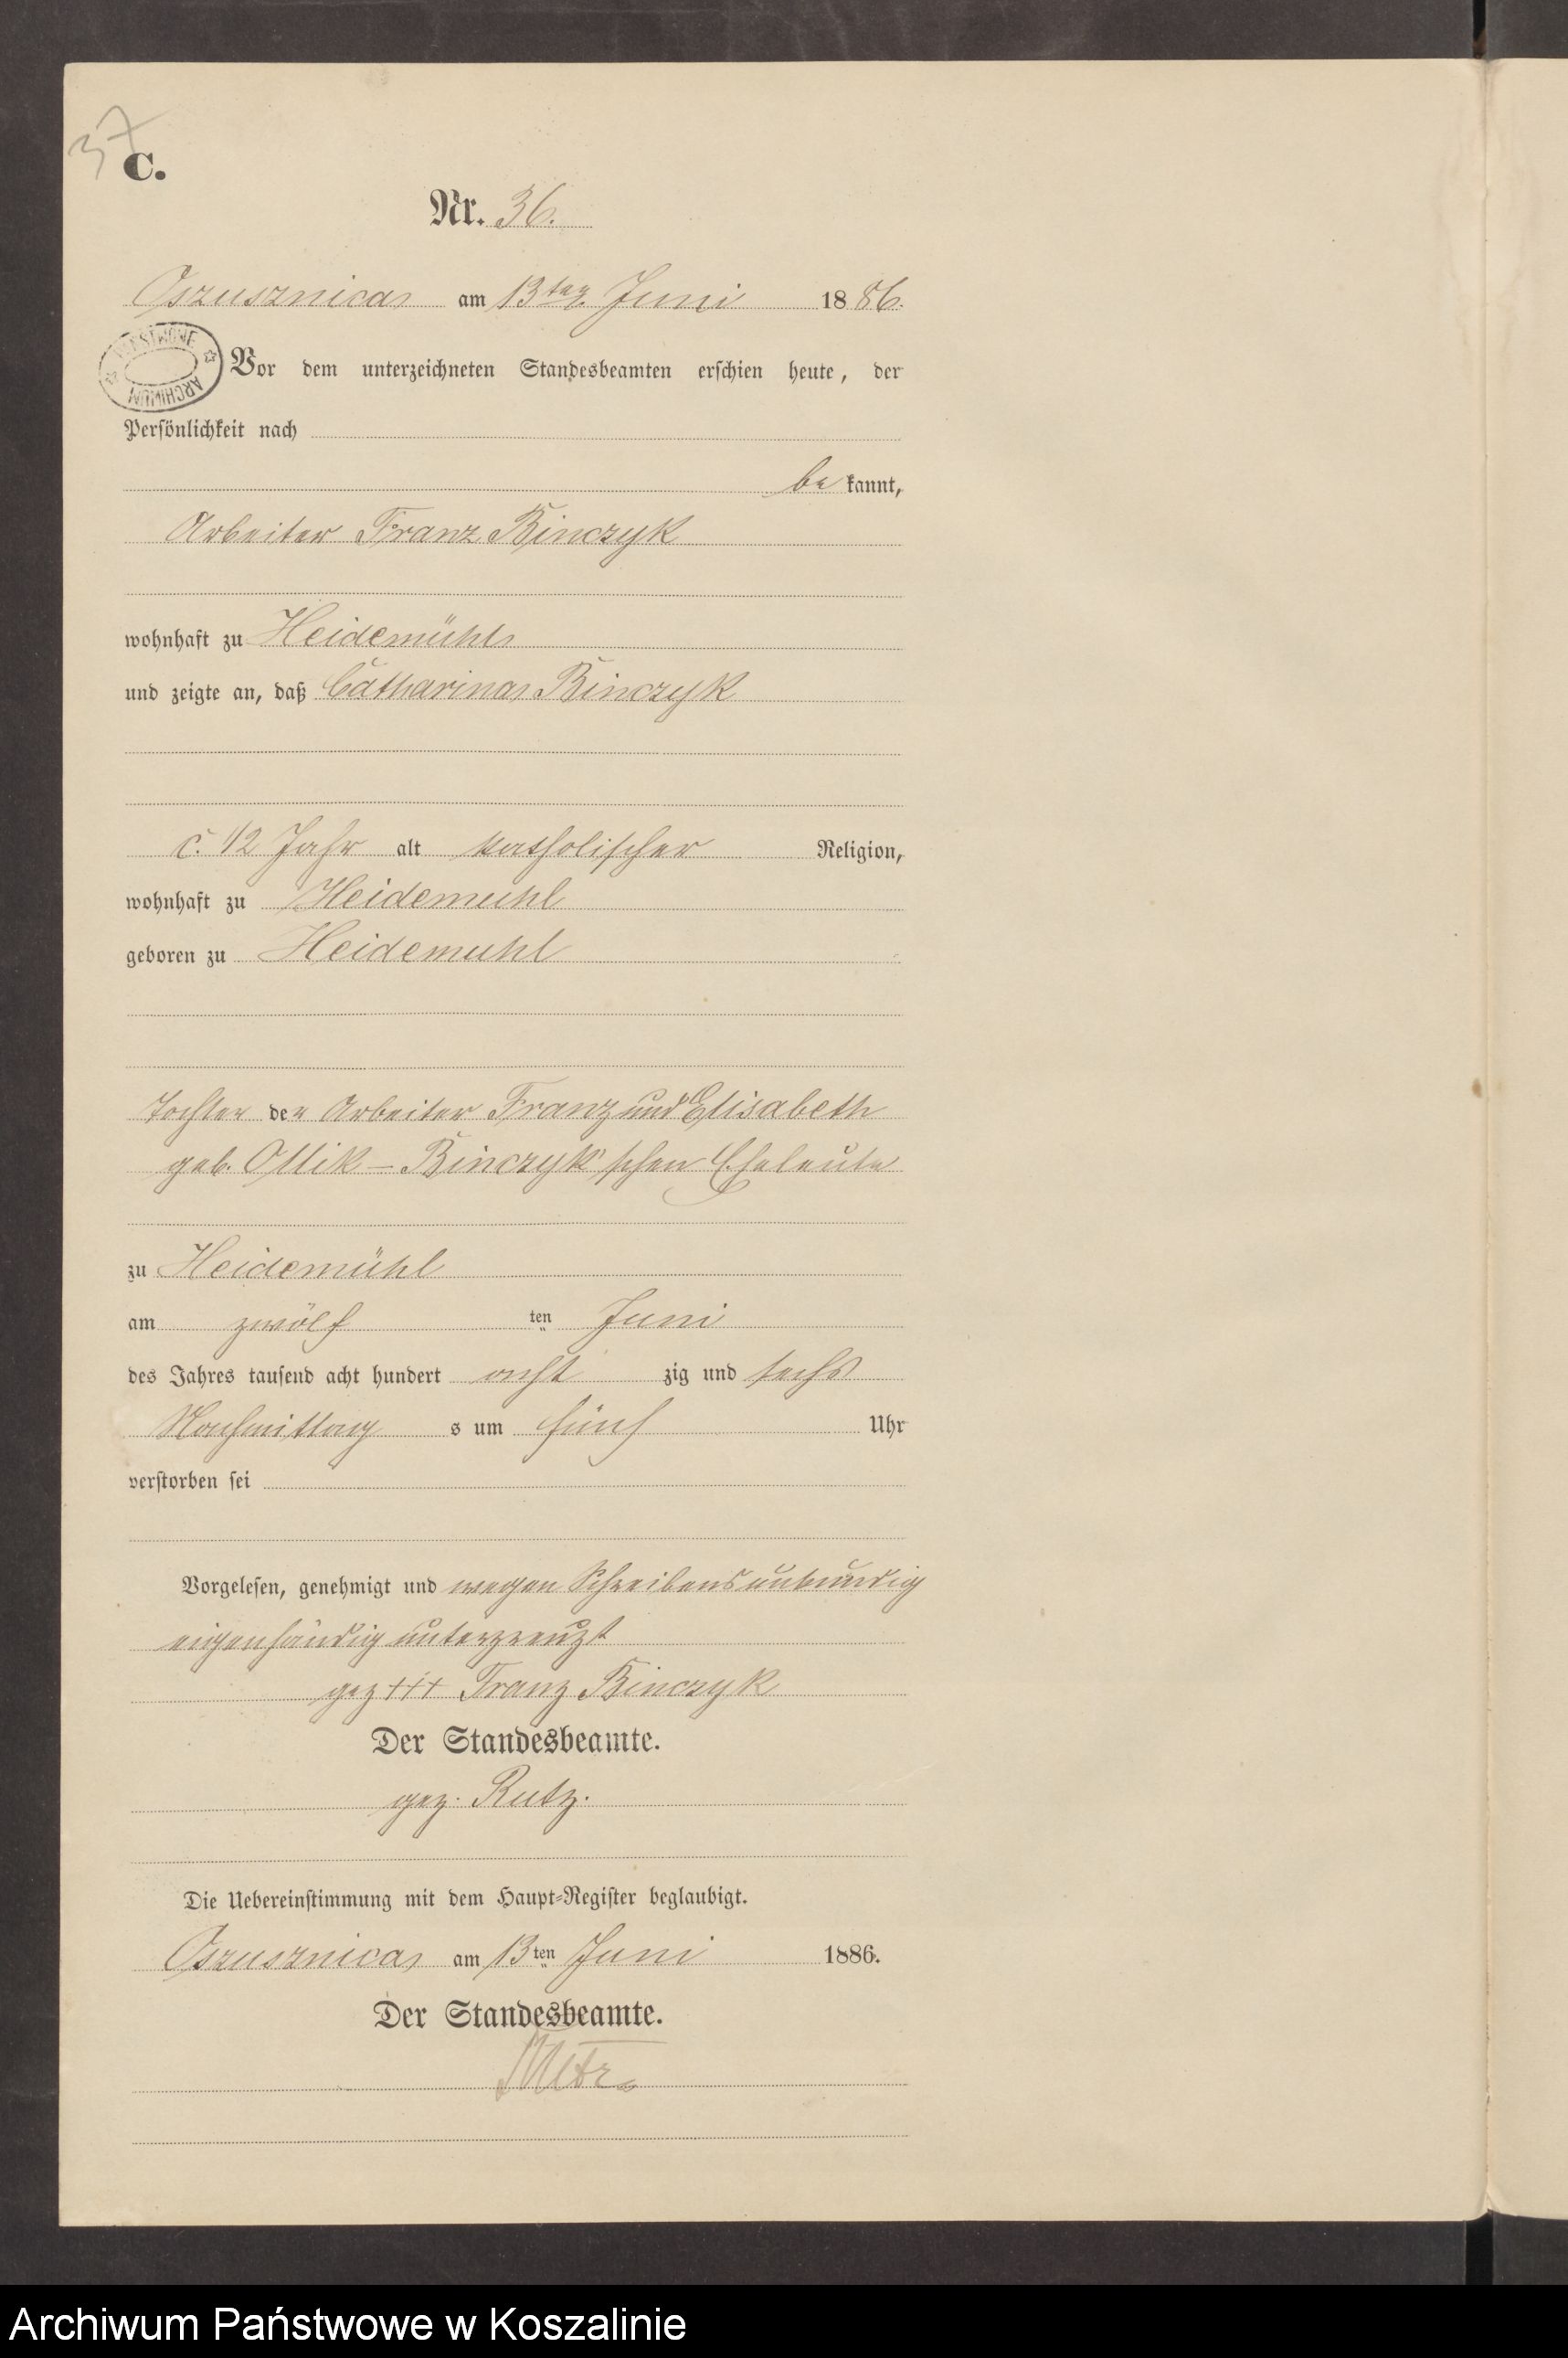 37
C.
Nr. 36.
Oszusznica am 13ten Juni 1886.
ARCHIWUM
Vor dem unterzeichneten Standesbeamten erschien heute, der
Persönlichkeit nach
be kannt,
Arbeiter Franz Binczyk
wohnhaft zu Heidemühl
und zeigte an, daß Catharina Binczyk
c. 1/2 Jahr alt katholischer Religion,
wohnhaft zu Heidemuhl
geboren zu Heidemuhl
Tochter der Arbeiter Franz und Elisabeth
geb. Ollik – Binczyk'schen Eheleute
zu Heidemühl
am zwölf ten Juni
des Jahres tausend acht hundert acht zig und sechs
Nachmittag s um fünf Uhr
verstorben sei
Vorgelesen, genehmigt und wegen Schreibensunkundig
eigenhändig unterkreuzt
gez +++ Franz Binczyk
Der Standesbeamte.
gez. Rutz.
Die Uebereinstimmung mit dem Haupt-Register beglaubigt.
Oszusznica am 13ten Juni 1886.
Der Standesbeamte.
Archiwum Państwowe w Koszalinie